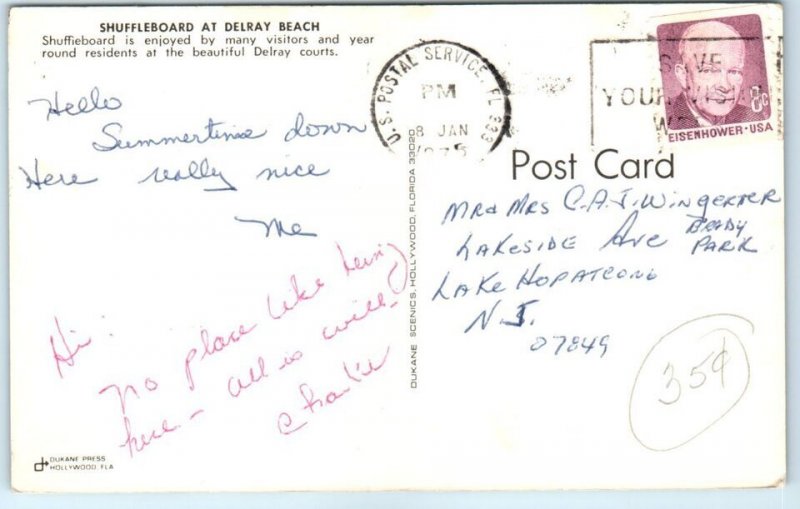 SHUFFLEBOARD AT DELRAY BEACH
Shuffleboard is enjoyed by many visitors and year
round residents at the beautiful Delray courts.
Hello
Summertime down
Here really nice
Me
Hi:
No place like being
here - all is well -
Charlie
DUKANE PRESS
HOLLYWOOD, FLA
DUKANE SCENICS, HOLLYWOOD, FLORIDA 33020
U.S. POSTAL SERVICE, FL 333
PM
8 JAN
1975
SAVE
YOUR VISION
EISENHOWER·USA
8c
Post Card
Mr & Mrs C.A.J. Wingerter
Lakeside Ave Brady Park
Lake Hopatcong
N.J.
07849
35¢